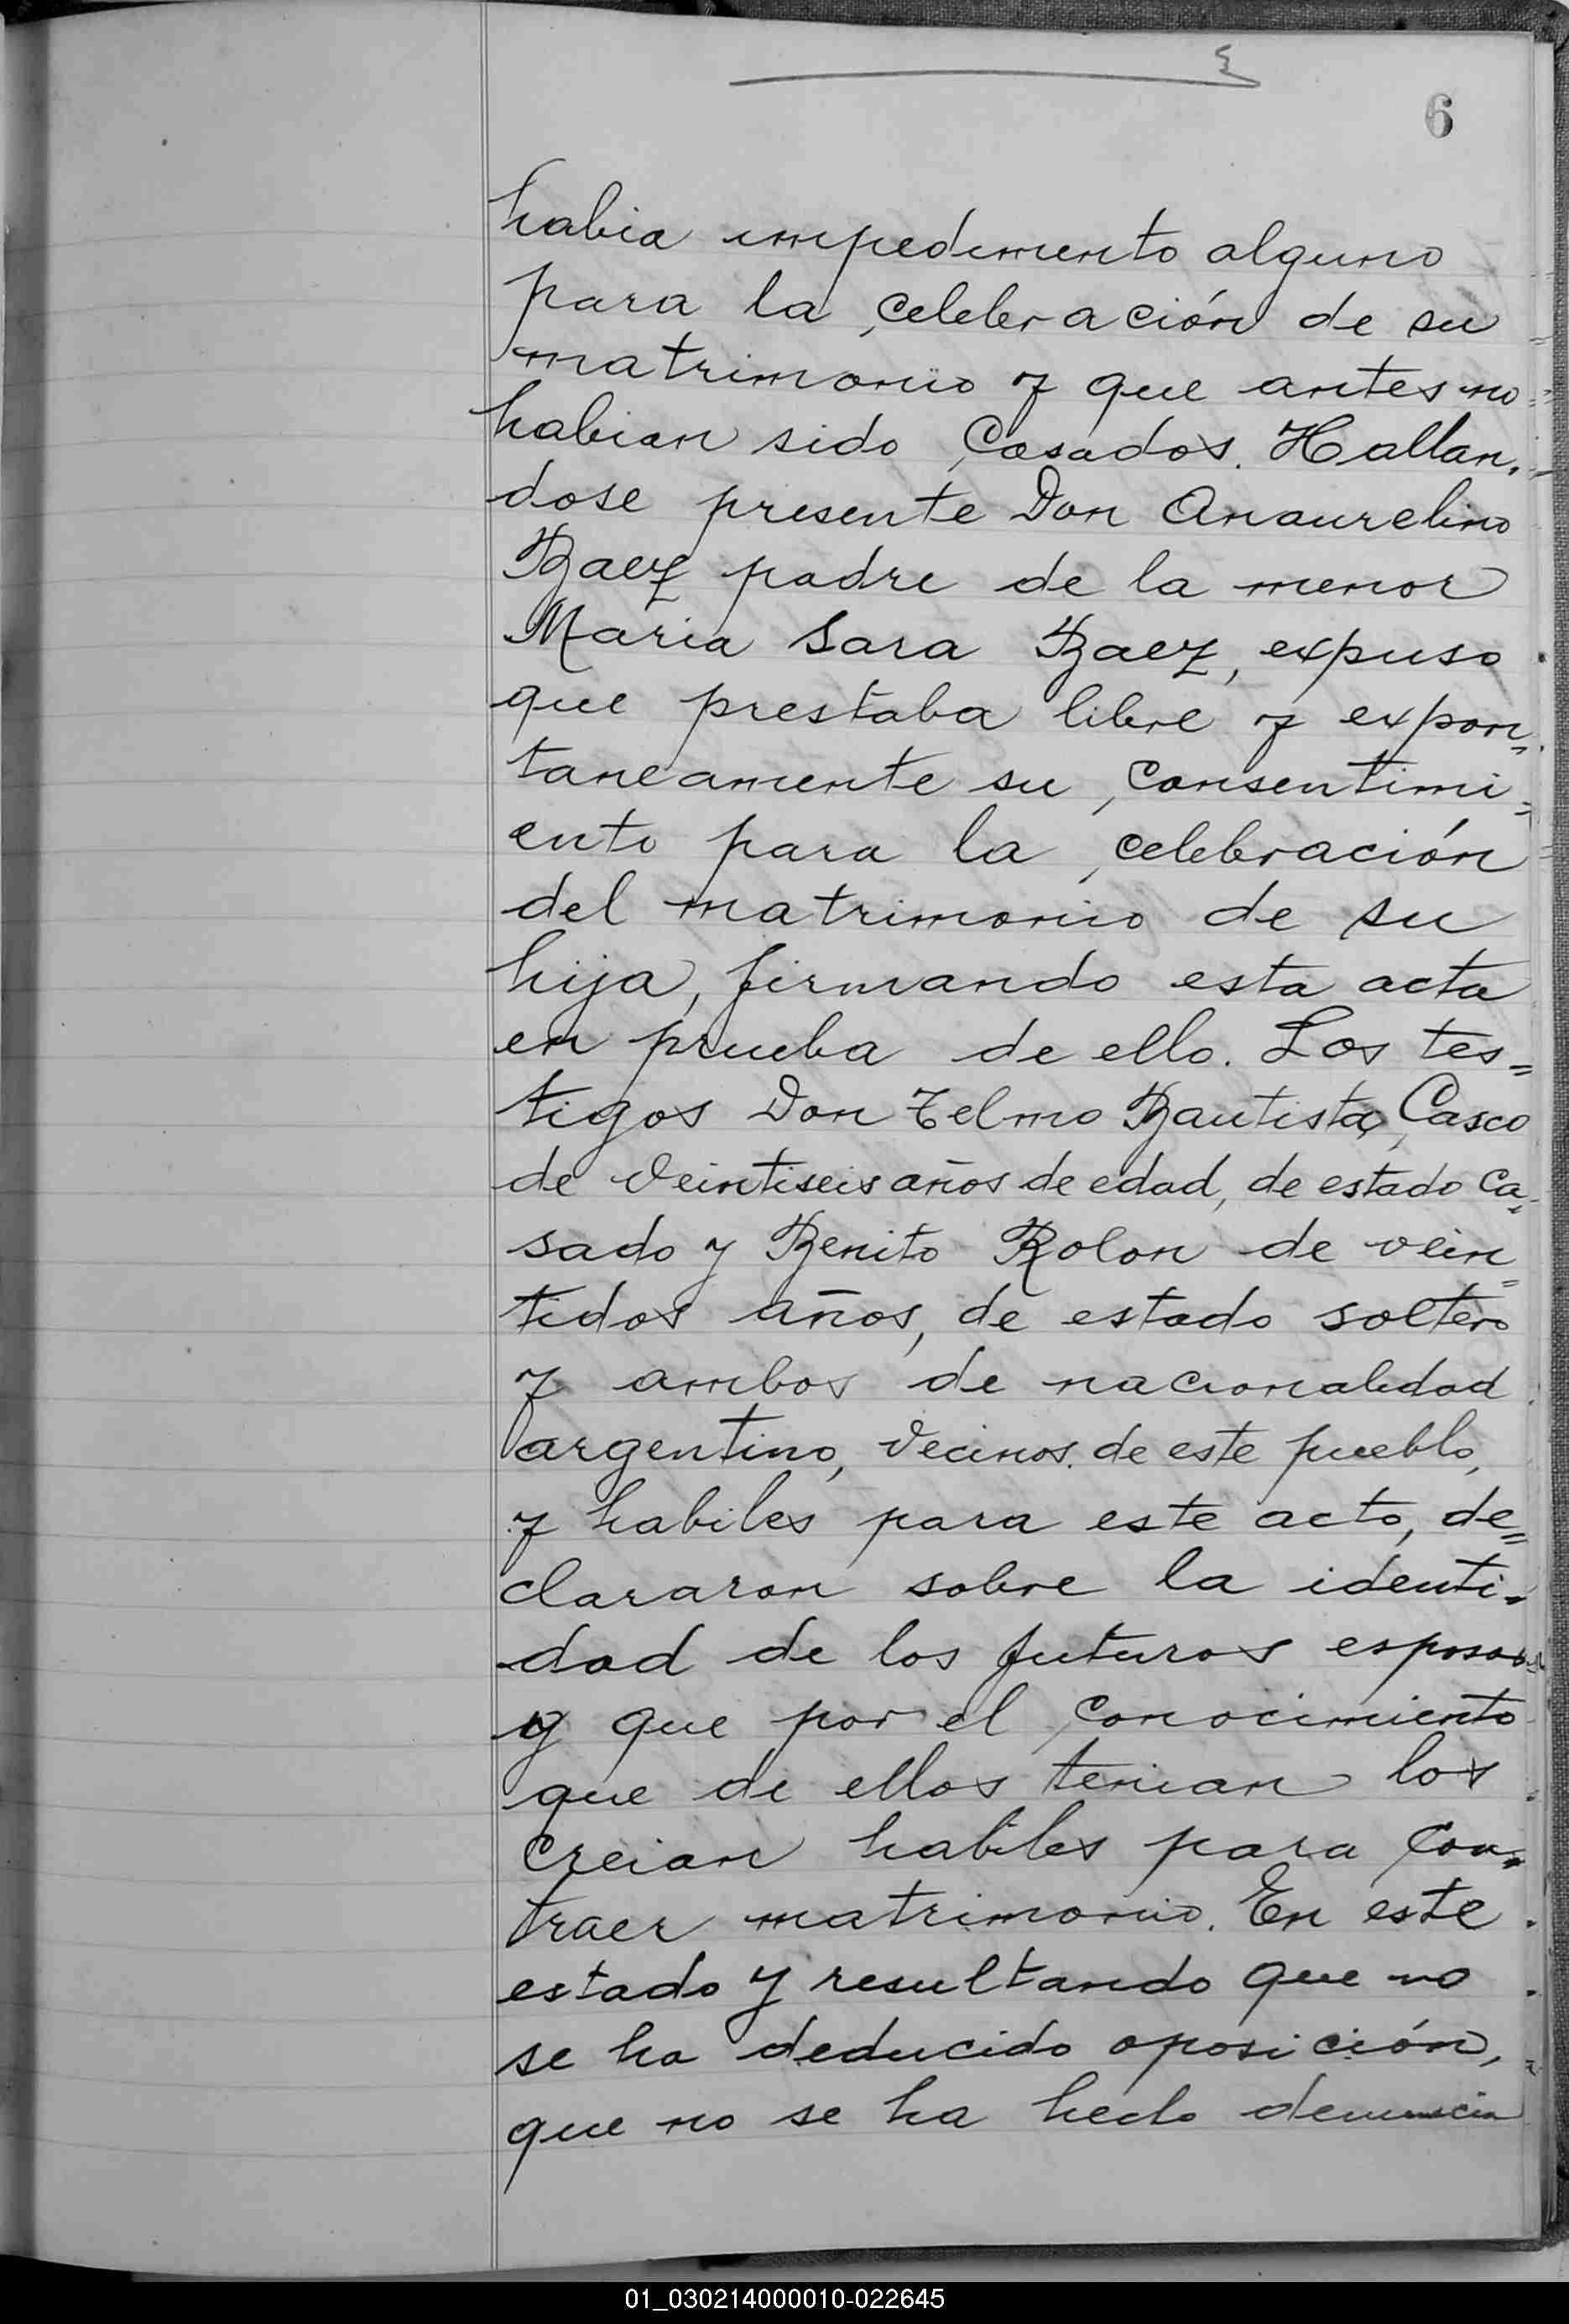 6
habia impedimento alguno
para la celebración de su
matrimonio y que antes no
habian sido casados. Hallan-
dose presente Don Anaurelino
Baez padre de la menor
Maria Sara Baez, expuso
que prestaba libre y expon=
taneamente su consentimi=
ento para la celebración
del matrimonio de su
hija, firmando esta acta
en prueba de ello. Los tes=
tigos Don Telmo Bautista Casco
de veintiseis años de edad, de estado ca=
sado y Benito Rolon de vein=
tidos años, de estado soltero
y ambos de nacionalidad
argentino, vecinos de este pueblo,
y habiles para este acto, de=
clararon sobre la identi=
dad de los futuros esposos
y que por el conocimiento
que de ellos tenian los
creian habiles para con=
traer matrimonio. En este
estado y resultando que no
se ha deducido oposición,
que no se ha hecho denuncia
01_030214000010-022645